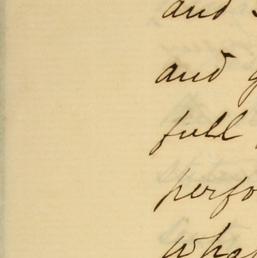 and
and g
full
perfo
wha